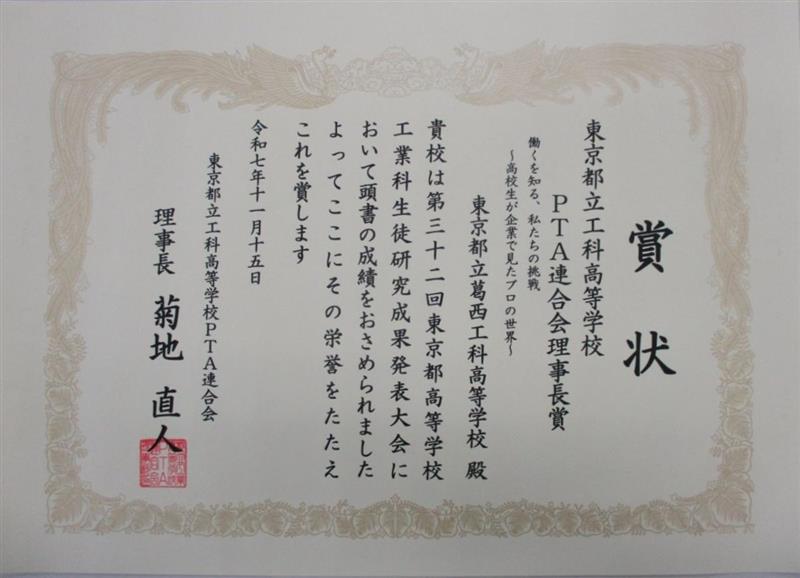 賞状
東京都立工科高等学校
PTA連合会理事長賞
働くを知る、私たちの挑戦
～高校生が企業で見たプロの世界～
東京都立葛西工科高等学校 殿
貴校は第三十二回東京都高等学校
工業科生徒研究成果発表大会に
おいて頭書の成績をおさめられました
よってここにその栄誉をたたえ
これを賞します
令和七年十一月十五日
東京都立工科高等学校PTA連合会
理事長 菊地 直人